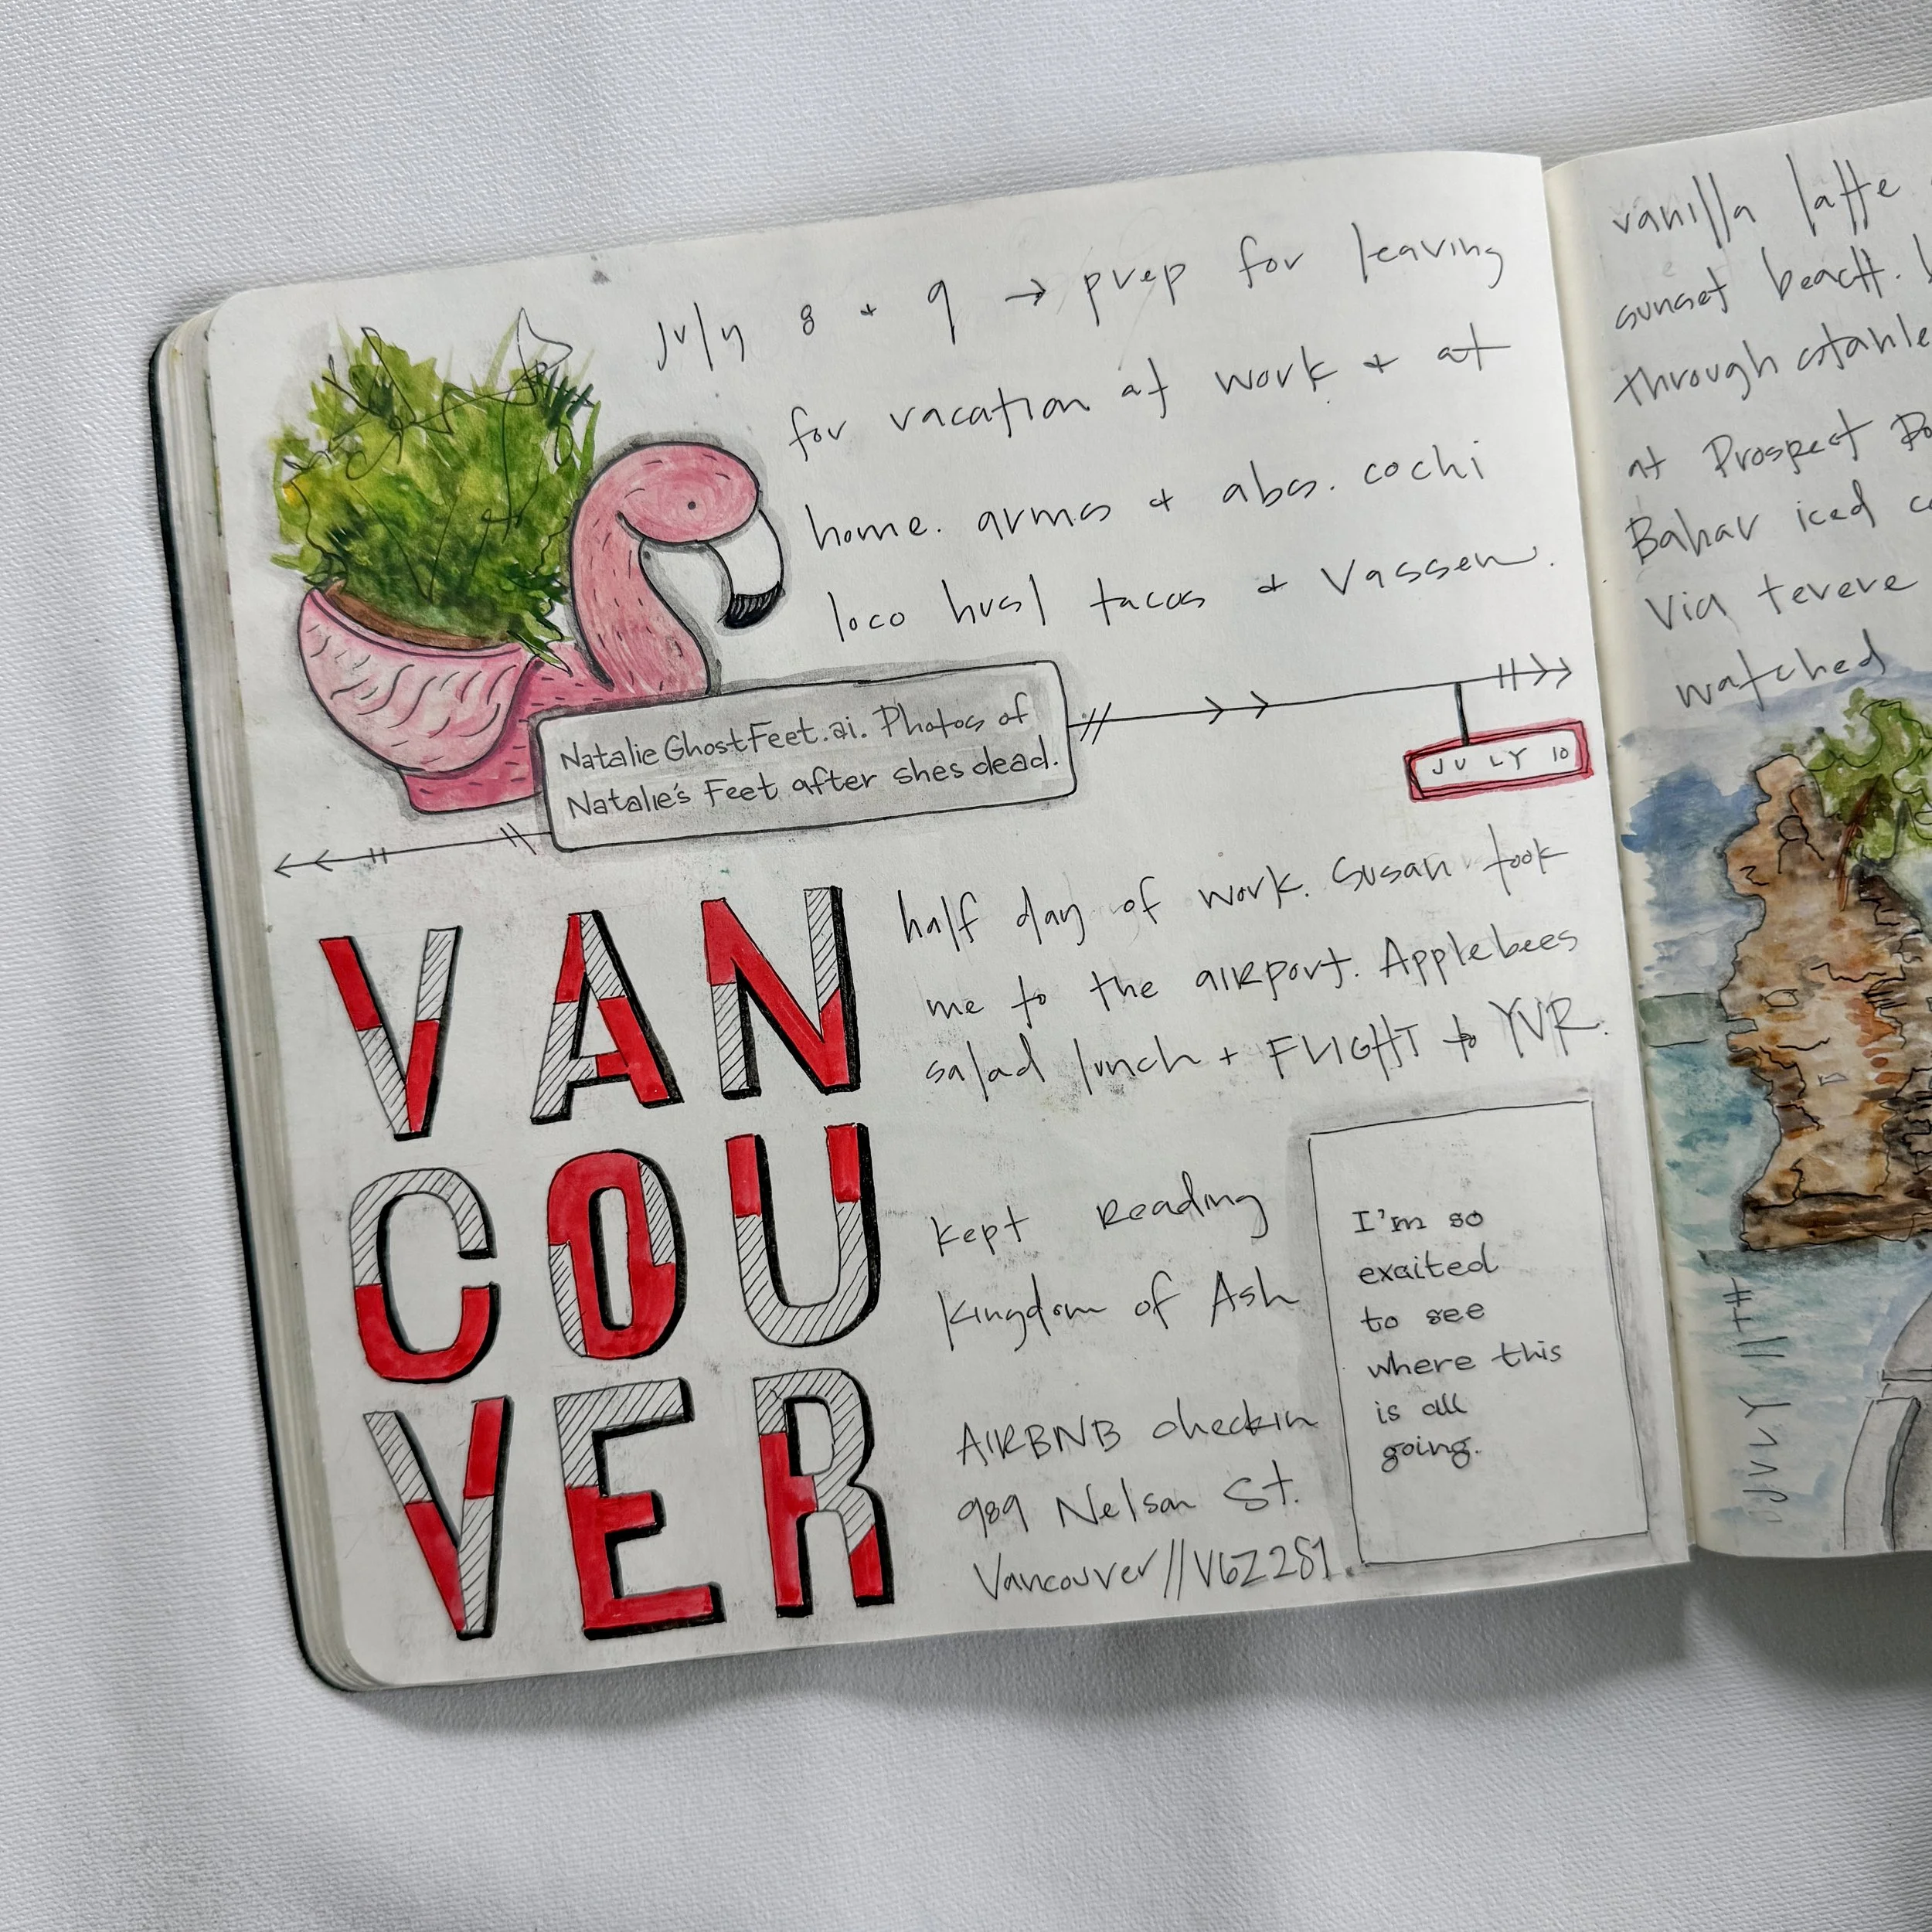 July 8 + 9 → prep for leaving
for vacation at work + at
home. arms + abs. cochi
loco husl tacos + Vassen.
Natalie GhostFeet.ai. Photos of
Natalie's Feet after shes dead.
JULY 10
VAN
COU
VER
half day of work. Susan took
me to the aiRport. Applebees
salad lunch + FLIGHT to YVR.
kept Reading
Kingdom of Ash
AIRBNB checkin
989 Nelson St.
Vancouver//V6Z2S1.
I'm so
exaited
to see
where this
is all
going.
vanilla latte
sunset beach.
through stanle
at Prospect Po
Bahar iced c
Via tevere
watched
JULY 11TH